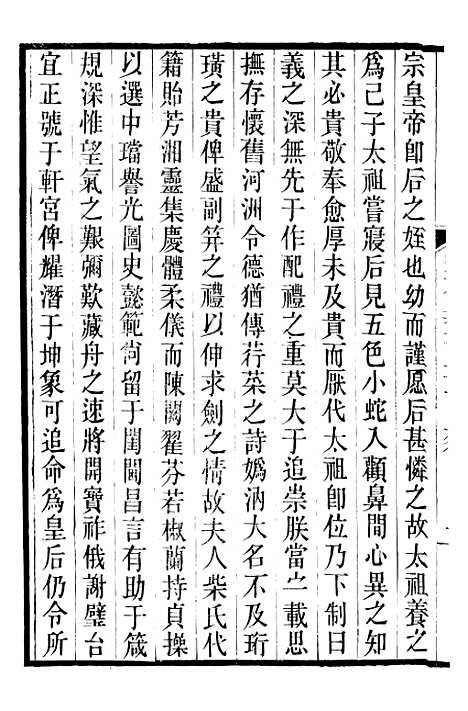 宗皇帝卽后之姪也幼而謹愿后甚憐之故太祖養之
爲己子太祖嘗寢后見五色小蛇入顴鼻間心異之知
其必貴敬奉愈厚未及貴而厭代太祖卽位乃下制曰
義之深無先于作配禮之重莫大于追崇朕當宁載思
撫存懷舊河洲令德猶傳荇菜之詩嬀汭大名不及珩
璜之貴俾盛副笄之禮以伸求劍之情故夫人柴氏代
籍貽芳湘靈集慶體柔儀而陳闕翟芬若椒蘭持貞操
以選中璫譽光圖史懿範尙留于閨閫昌言有助于箴
規深惟望氣之艱彌歎藏舟之速將開寶祚俄謝璧台
宜正號于軒宮俾耀潛于坤象可追命爲皇后仍令所